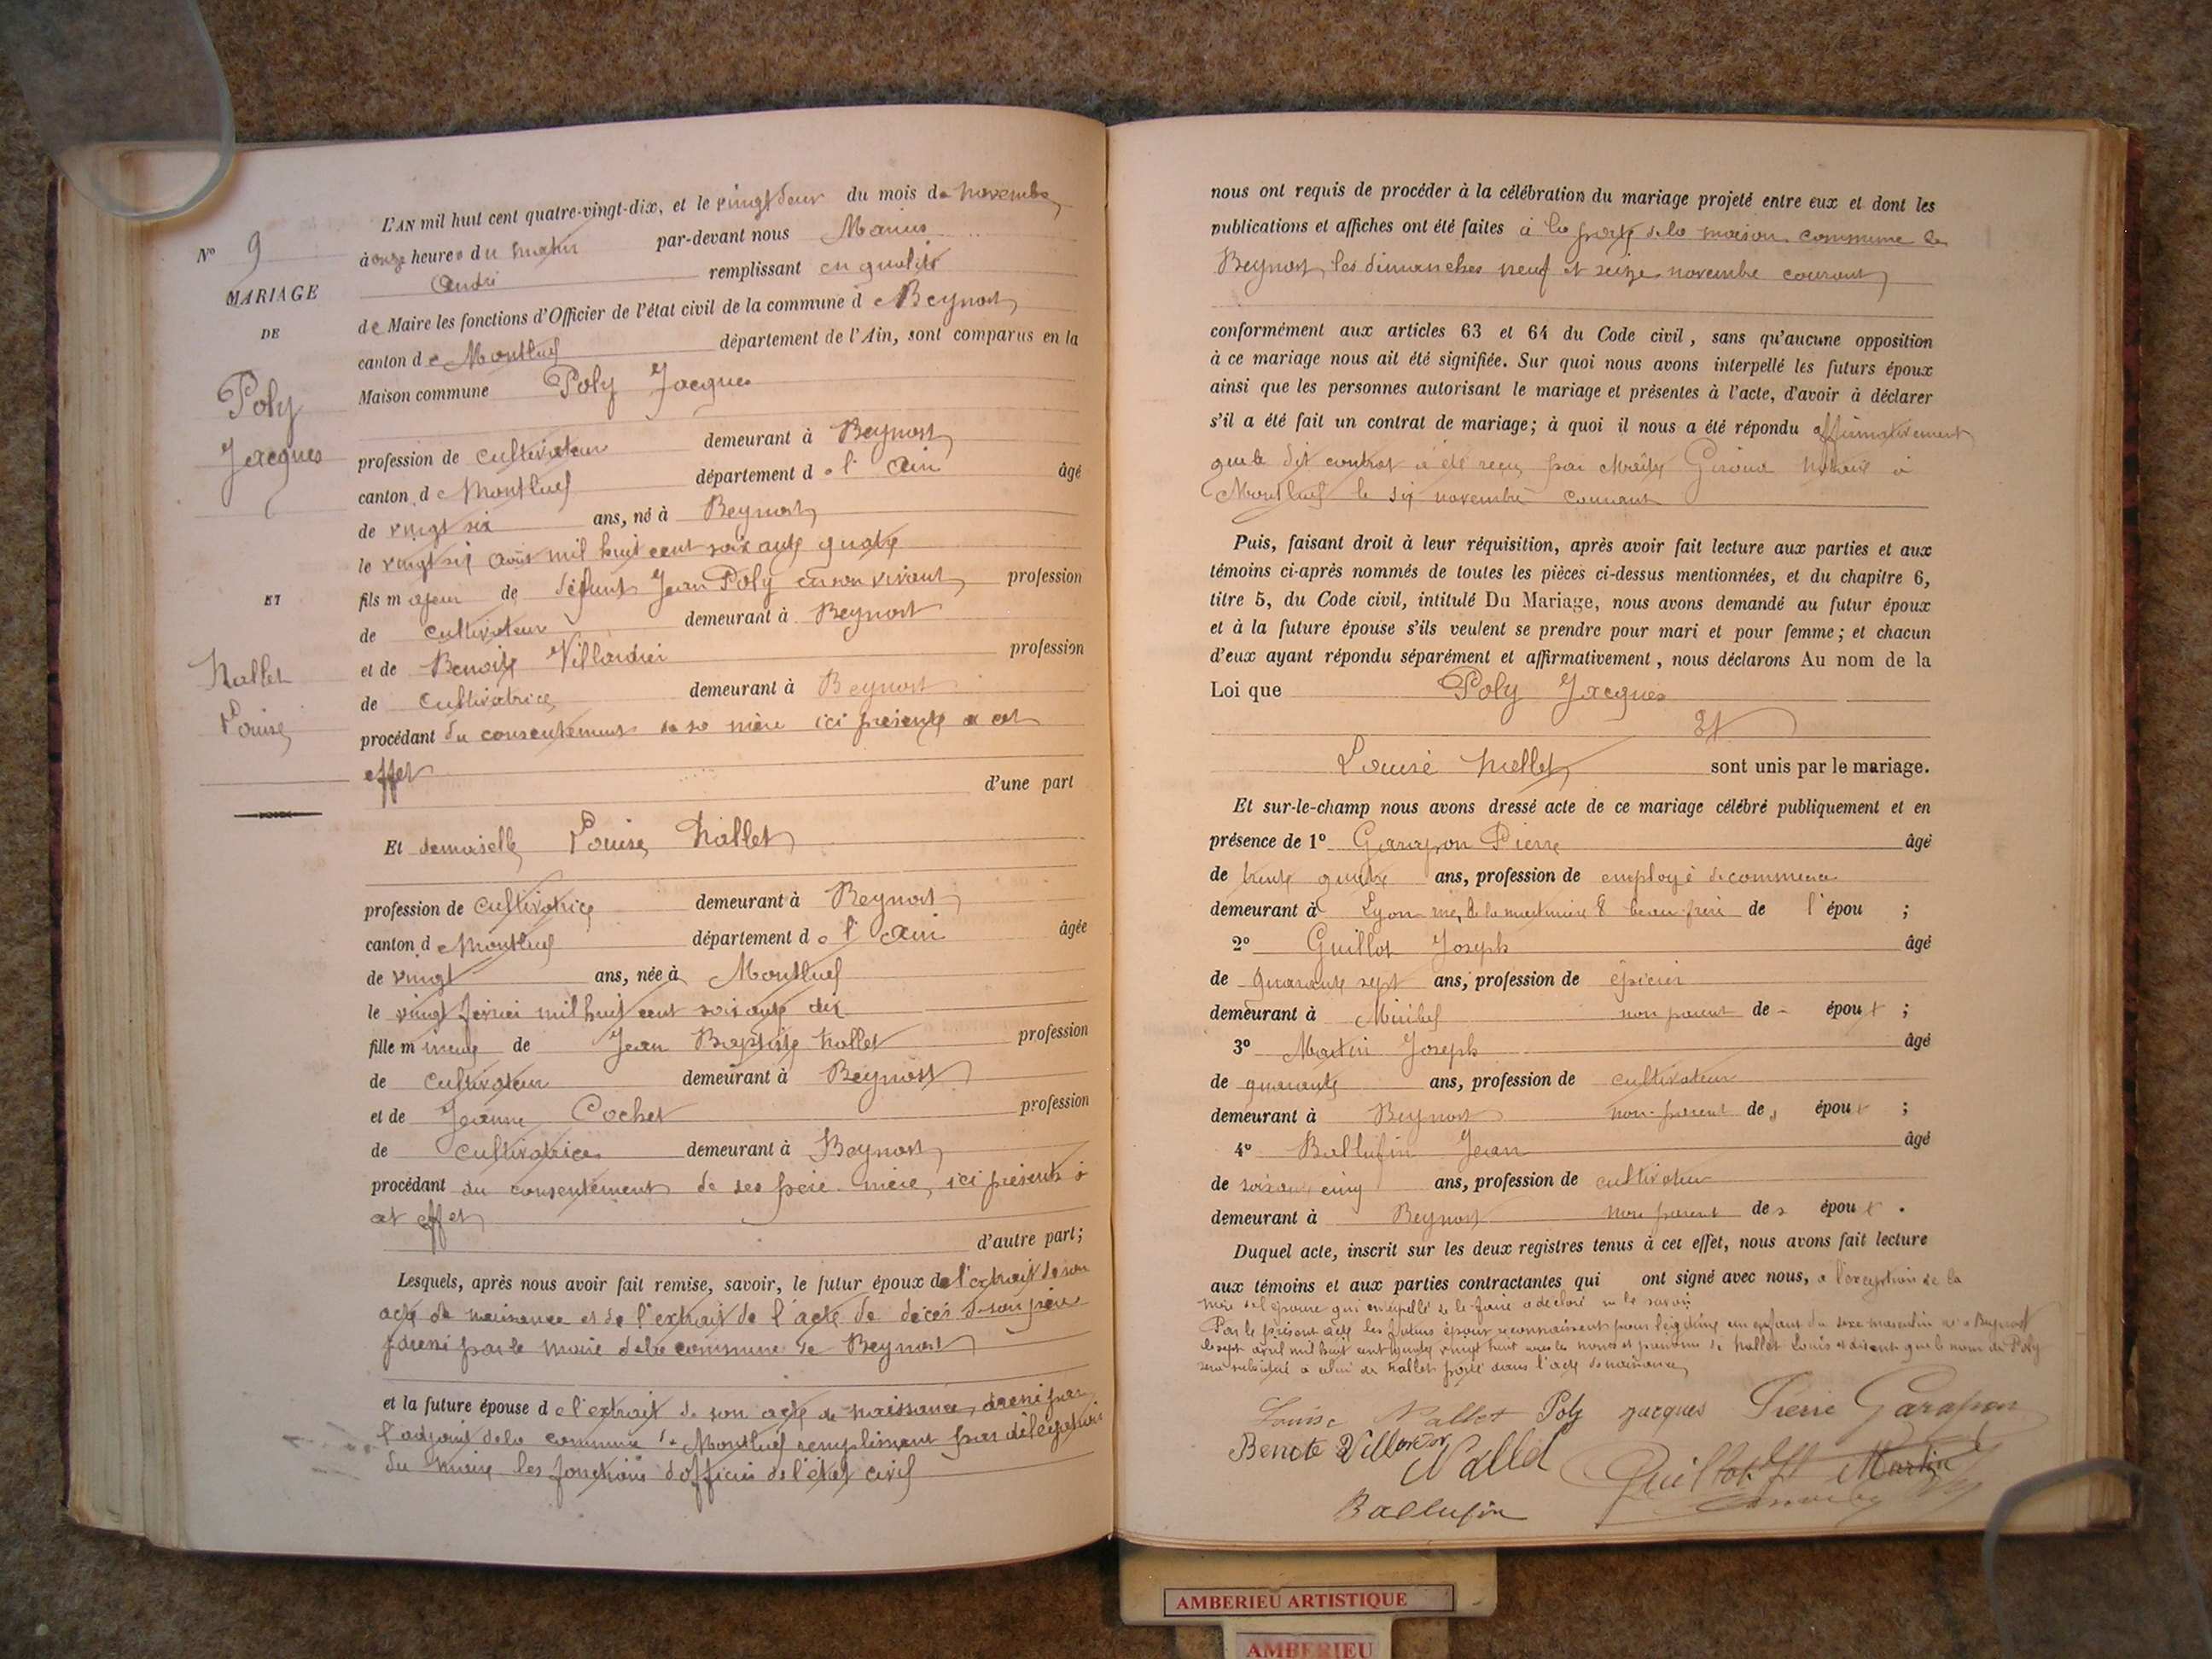 L'AN mil huit cent quatre-vingt-dix, et le vingt deux du mois de novembre
N° 9
à onze heures du matin par-devant nous Marius
André remplissant en qualité
MARIAGE
de Maire les fonctions d'Officier de l'état civil de la commune de Beynost
DE
canton de Montluel département de l'Ain, sont comparus en la
Maison commune Poly Jacques
Poly
Jacques
profession de cultivateur demeurant à Beynost
canton de Montluel département de l'Ain âgé
de vingt six ans, né à Beynost
le vingt six août mil huit cent soixante quatre
ET
fils majeur de défunt Jean Poly en son vivant profession
de cultivateur demeurant à Beynost
et de Benoite Villardier profession
Nallet
Louise
de cultivatrice demeurant à Beynost
procédant du consentement de sa mère ici présente a cet
effet
d'une part
Et demoiselle Louise Nallet
profession de cultivatrice demeurant à Beynost
canton de Montluel département de l'Ain âgée
de vingt ans, née à Montluel
le vingt février mil huit cent soixante dix
fille mineure de Jean Baptiste Nallet profession
de cultivateur demeurant à Beynost
et de Jeanne Cochet profession
de cultivatrice demeurant à Beynost
procédant du consentement de ses père mère, ici présents à
cet effet
d'autre part;
Lesquels, après nous avoir fait remise, savoir, le futur époux de l'extrait de son
acte de naissance et de l'extrait de l'acte de décès de son père
dressé par le maire de la commune de Beynost
et la future épouse de l'extrait de son acte de naissance, dressé par
l'adjoint de la commune de Montluel remplissant par délégation
du maire les fonctions d'officier de l'état civil
nous ont requis de procéder à la célébration du mariage projeté entre eux et dont les
publications et affiches ont été faites à la porte de la maison commune de
Beynost, les dimanches neuf et seize novembre courant
conformément aux articles 63 et 64 du Code civil, sans qu'aucune opposition
à ce mariage nous ait été signifiée. Sur quoi nous avons interpellé les futurs époux
ainsi que les personnes autorisant le mariage et présentes à l'acte, d'avoir à déclarer
s'il a été fait un contrat de mariage; à quoi il nous a été répondu affirmativement
que le dit contrat a été reçu par Maître Giroud notaire à
Montluel le six novembre courant
Puis, faisant droit à leur réquisition, après avoir fait lecture aux parties et aux
témoins ci-après nommés de toutes les pièces ci-dessus mentionnées, et du chapitre 6,
titre 5, du Code civil, intitulé Du Mariage, nous avons demandé au futur époux
et à la future épouse s'ils veulent se prendre pour mari et pour femme; et chacun
d'eux ayant répondu séparément et affirmativement, nous déclarons Au nom de la
Loi que Poly Jacques
Et
Louise Nallet sont unis par le mariage.
Et sur-le-champ nous avons dressé acte de ce mariage célébré publiquement et en
présence de 1° Garapon Pierre âgé
de trente quatre ans, profession de employé de commerce
demeurant à Lyon rue de la martinière 8 beau-frère de l'épou ;
2° Guillot Joseph âgé
de quarante sept ans, profession de épicier
demeurant à Miribel non parent de époux ;
3° Martin Joseph âgé
de quarante ans, profession de cultivateur
demeurant à Beynost non-parent des époux ;
4° Ballufin Jean âgé
de soixante cinq ans, profession de cultivateur
demeurant à Beynost non parent des époux .
Duquel acte, inscrit sur les deux registres tenus à cet effet, nous avons fait lecture
aux témoins et aux parties contractantes qui ont signé avec nous, a l'exception de la
mère de l'épouse qui interpellé de le faire a déclaré ne le savoir
Par le présent acte les futurs époux reconnaissent pour légitime un enfant du sexe masculin né à Beynost
le sept avril mil huit cent quatre vingt huit sous les noms et prénoms de Nallet Louis et disent que le nom de Poly
sera substitué a celui de Nallet porté dans l'acte de naissance
Louise Nallet Poly jacques Pierre Garapon
Benoite Villardier Nallet Guillot Martin
Ballufin
AMBERIEU ARTISTIQUE
AMBERIEU